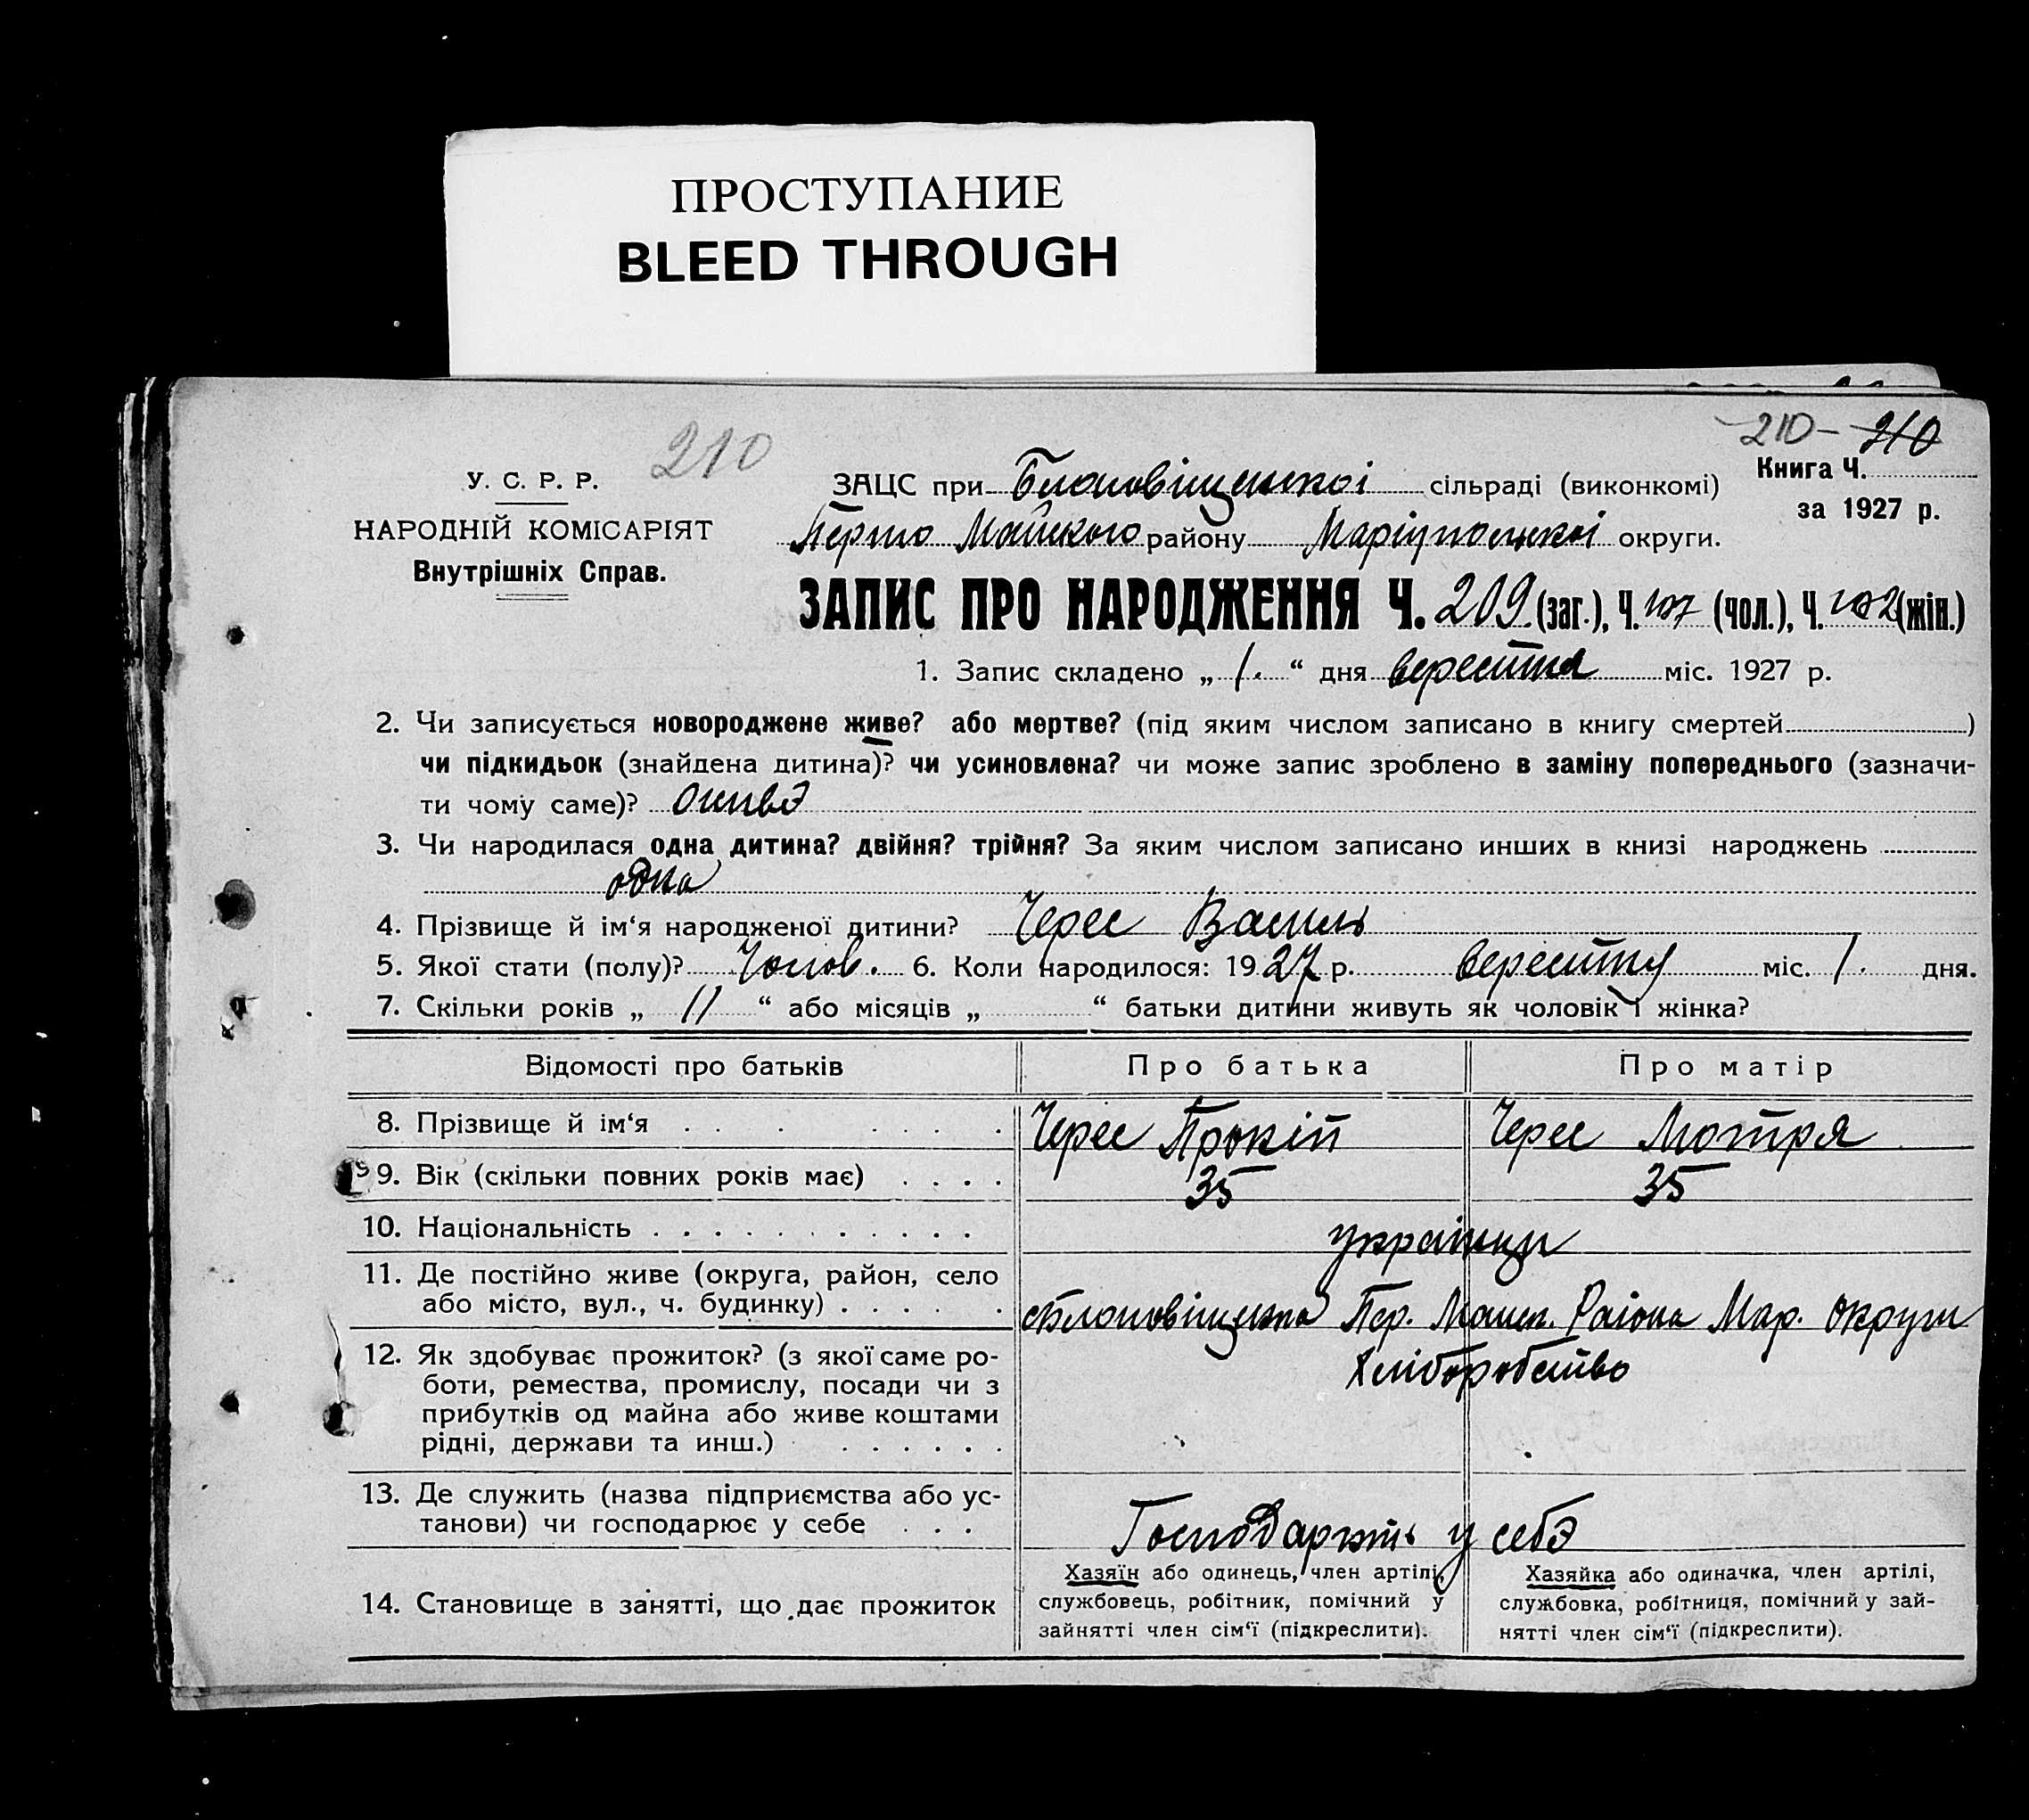 ПРОСТУПАНИЕ
BLEED THROUGH
210
210 - 210
У. С. Р. Р.
НАРОДНІЙ КОМІСАРІЯТ
Внутрішніх Справ.
ЗАЦС при Благовіщенскоі сільраді (виконкомі)
Книга Ч.
за 1927 р.
Першо Майского району Маріупольскоі округи.
ЗАПИС ПРО НАРОДЖЕННЯ Ч. 209 (заг.), Ч. 107 (чол.), Ч. 102 (жін.)
1. Запис складено „ 1. “ дня вересітня міс. 1927 р.
2. Чи записується новороджене живе? або мертве? (під яким числом записано в книгу смертей )
чи підкидьок (знайдена дитина)? чи усиновлена? чи може запис зроблено в заміну попереднього (зазначи-
ти чому саме)? живэ
3. Чи народилася одна дитина? двійня? трійня? За яким числом записано инших в книзі народжень
одна
4. Прізвище й ім‘я народженої дитини? Черес Василь
5. Якої стати (полу)? Чолов. 6. Коли народилося: 1927 р. вересітня міс. 1. дня.
7. Скільки років „ 11 “ або місяців „ “ батьки дитини живуть як чоловік і жінка?
Відомості про батьків Про батька Про матір
8. Прізвище й ім‘я Черес Прокіп Черес Мотря
9. Вік (скільки повних років має) 35 35
10. Національність украінци
11. Де постійно живе (округа, район, село
або місто, вул., ч. будинку) с Благовіщенка Пер. Майск. Раіона Мар. округи
12. Як здобуває прожиток? (з якої саме ро- Хліборобство
боти, ремества, промислу, посади чи з
прибутків од майна або живе коштами
рідні, держави та инш.)
13. Де служить (назва підприємства або ус-
танови) чи господарює у себе Господарють у себэ
14. Становище в занятті, що дає прожиток
Хазяїн або одинець, член артілі,
службовець, робітник, помічний у
зайнятті член сім‘ї (підкреслити).
Хазяйка або одиначка, член артілі,
службовка, робітниця, помічний у зай-
нятті член сім‘ї (підкреслити).